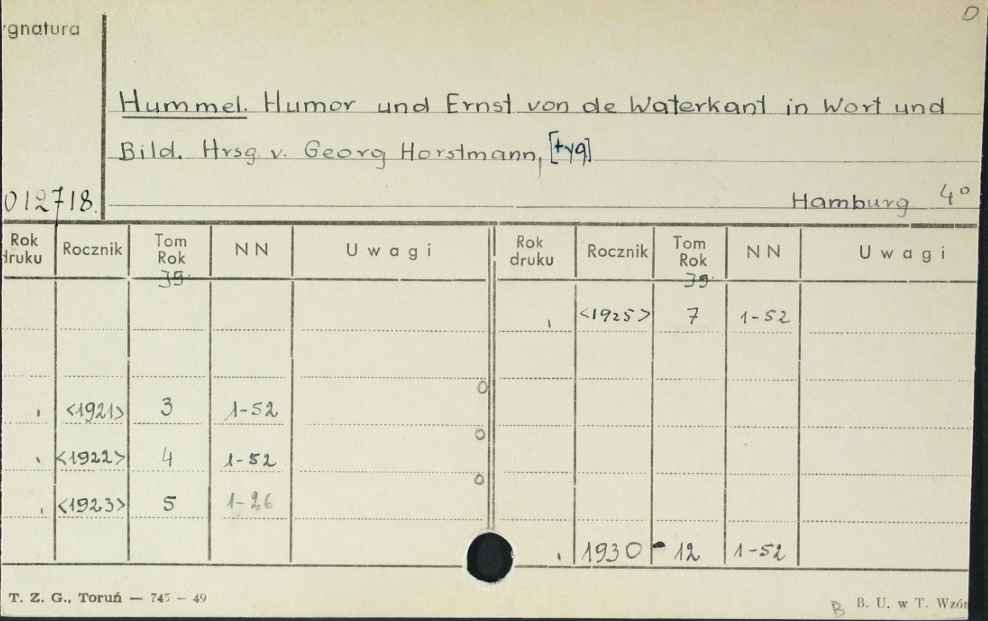 ygnatura
O
Hummel. Humor und Ernst von de Waterkant in Wort und
Bild. Hrsg v. Georg Horstmann, [tyg]
012718.
Hamburg 4°
Rok druku Rocznik Tom Rok NN Uwagi Rok druku Rocznik Tom Rok NN Uwagi
Jg. Jg.
<1925> 7 1-52
<1921> 3 1-52
<1922> 4 1-52
<1923> 5 1-26
1930 - 12 1-52
T. Z. G., Toruń — 745 – 49
B B. U. w T. Wzór